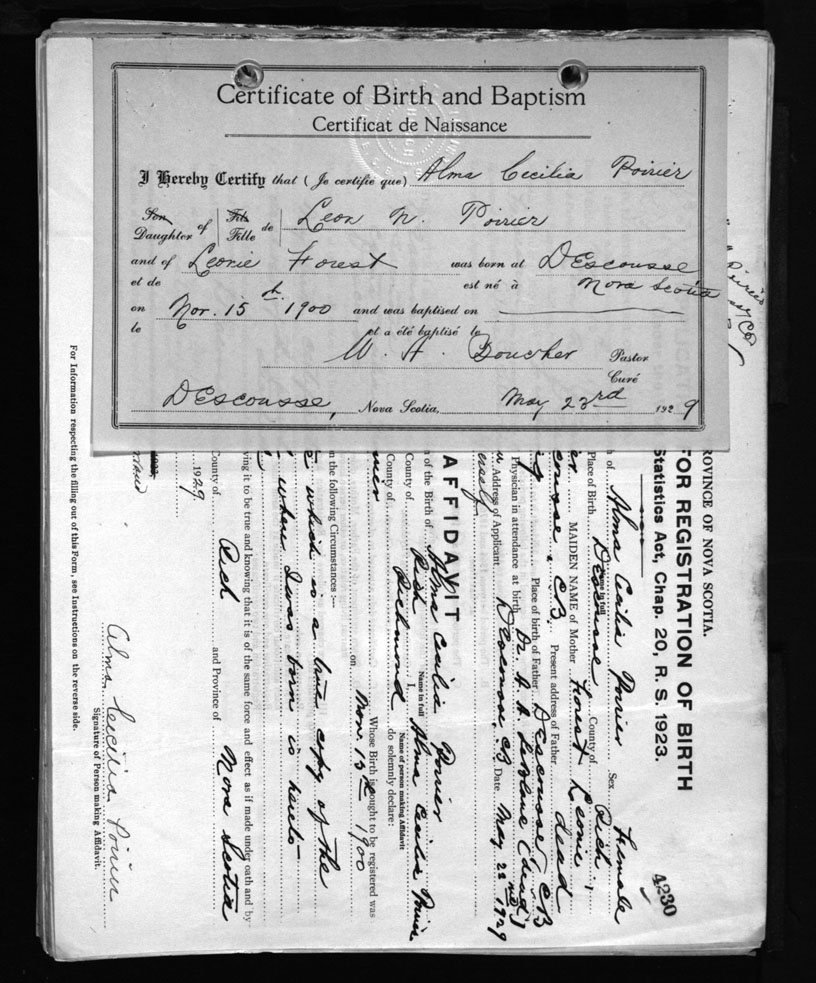 Certificate of Birth and Baptism
Certificat de Naissance
I Hereby Certify that (Je certifie que) Alma Cecilia Poirier
Son Daughter of Fils Fille de Leon N. Poirier
and of Leonie Forest was born at DEscousse
et de est né à Nova Scotia
on Nov. 15th 1900 and was baptised on
le et a été baptisé le
W. A. Boucher Pastor
Curé
DEscousse, Nova Scotia, May 23rd 1929
ROVINCE OF NOVA SCOTIA.
FOR REGISTRATION OF BIRTH
Statistics Act, Chap. 20, R. S. 1923.
4230
of Alma Cecilia Poirier Sex Female
Name in full
Place of Birth Descousse County of Rich.
MAIDEN NAME of Mother Forest Leonie
cousse, CB Present address of Father dead
Place of birth of Father Descousse, CB
Physician in attendance at birth Dr. LeBlanc (dead)
Address of Applicant Descousse, CB Date May 22nd 1929
AFFIDAVIT
n of the Birth of Alma Cecilia Poirier
Name in full
County of Rich I, Alma Cecilia Poirier
Name of person making Affidavit
County of Richmond do solemnly declare:
Whose Birth is sought to be registered was
on Nov. 15th 1900
n the following Circumstances :—
which is a true copy of the
where I was born is hereto
ving it to be true and knowing that it is of the same force and effect as if made under oath and by
County of Rich and Province of Nova Scotia
1929
Alma Cecilia Poirier
Signature of Person making Affidavit.
For Information respecting the filling out of this Form, see Instructions on the reverse side.